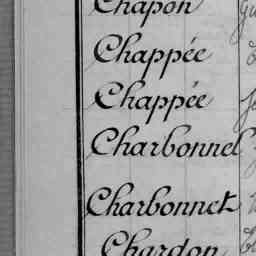 Chapon
Chappée
Chappée
Charbonnel
Charbonnet
Chardon